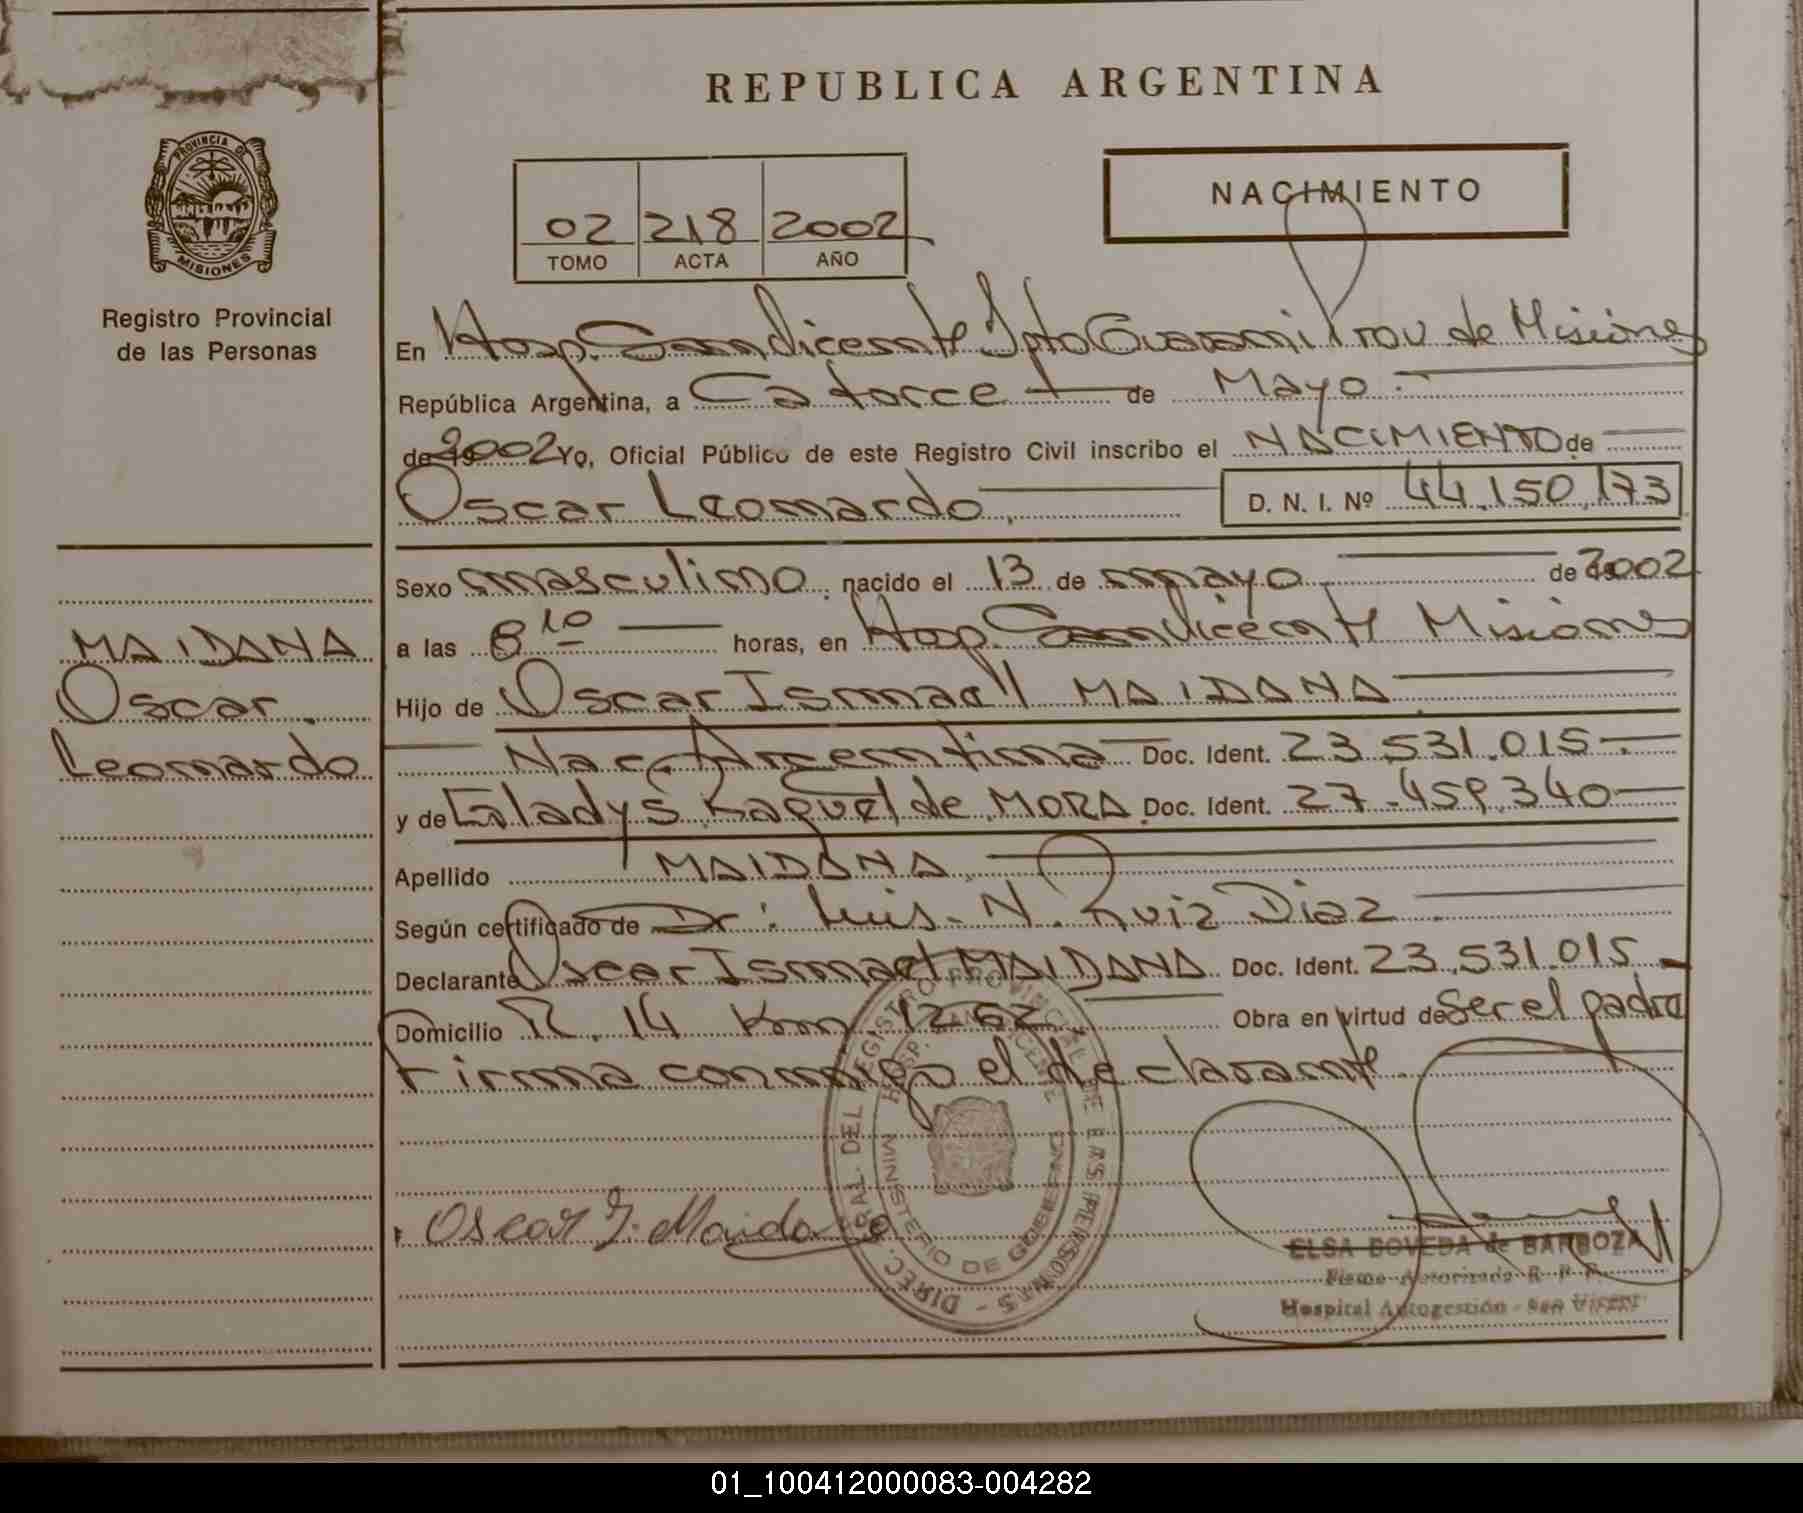 REPUBLICA ARGENTINA
PROVINCIA DE
MISIONES
Registro Provincial
de las Personas
02 218 2002
TOMO ACTA AÑO
NACIMIENTO
En Hosp. San Vicente Dpto Guarani Prov de Misiones
República Argentina, a Catorce de Mayo
de 2002 Yo, Oficial Público de este Registro Civil inscribo el NACIMIENTO de
Oscar Leonardo D. N. I. Nº 44.150.173
Sexo masculino, nacido el 13 de mayo de 2002
a las 8 10 horas, en Hosp. San Vicente Misiones
Hijo de Oscar Ismael MAIDANA
Nac. Argentina Doc. Ident. 23.531.015
y de Gladys Raquel de MORA Doc. Ident. 27.459.340
Apellido MAIDANA
Según certificado de Dr: Luis N. Ruiz Diaz
Declarante Oscar Ismael MAIDANA Doc. Ident. 23.531.015
Domicilio R. 14 Km. 1262 Obra en virtud de Ser el padre
Firma conmigo el declarante
MAIDANA
Oscar
Leonardo
Oscar I. Maidana
DIREC. GRAL. DEL REGISTRO PROVINCIAL DE LAS PERSONAS
HOSP. SAN VICENTE
MINISTERIO DE GOBIERNO
ELSA BOVEDA de BARBOZA
Firma Autorizada R. P. P.
Hospital Autogestión - San Vicente
01_100412000083-004282